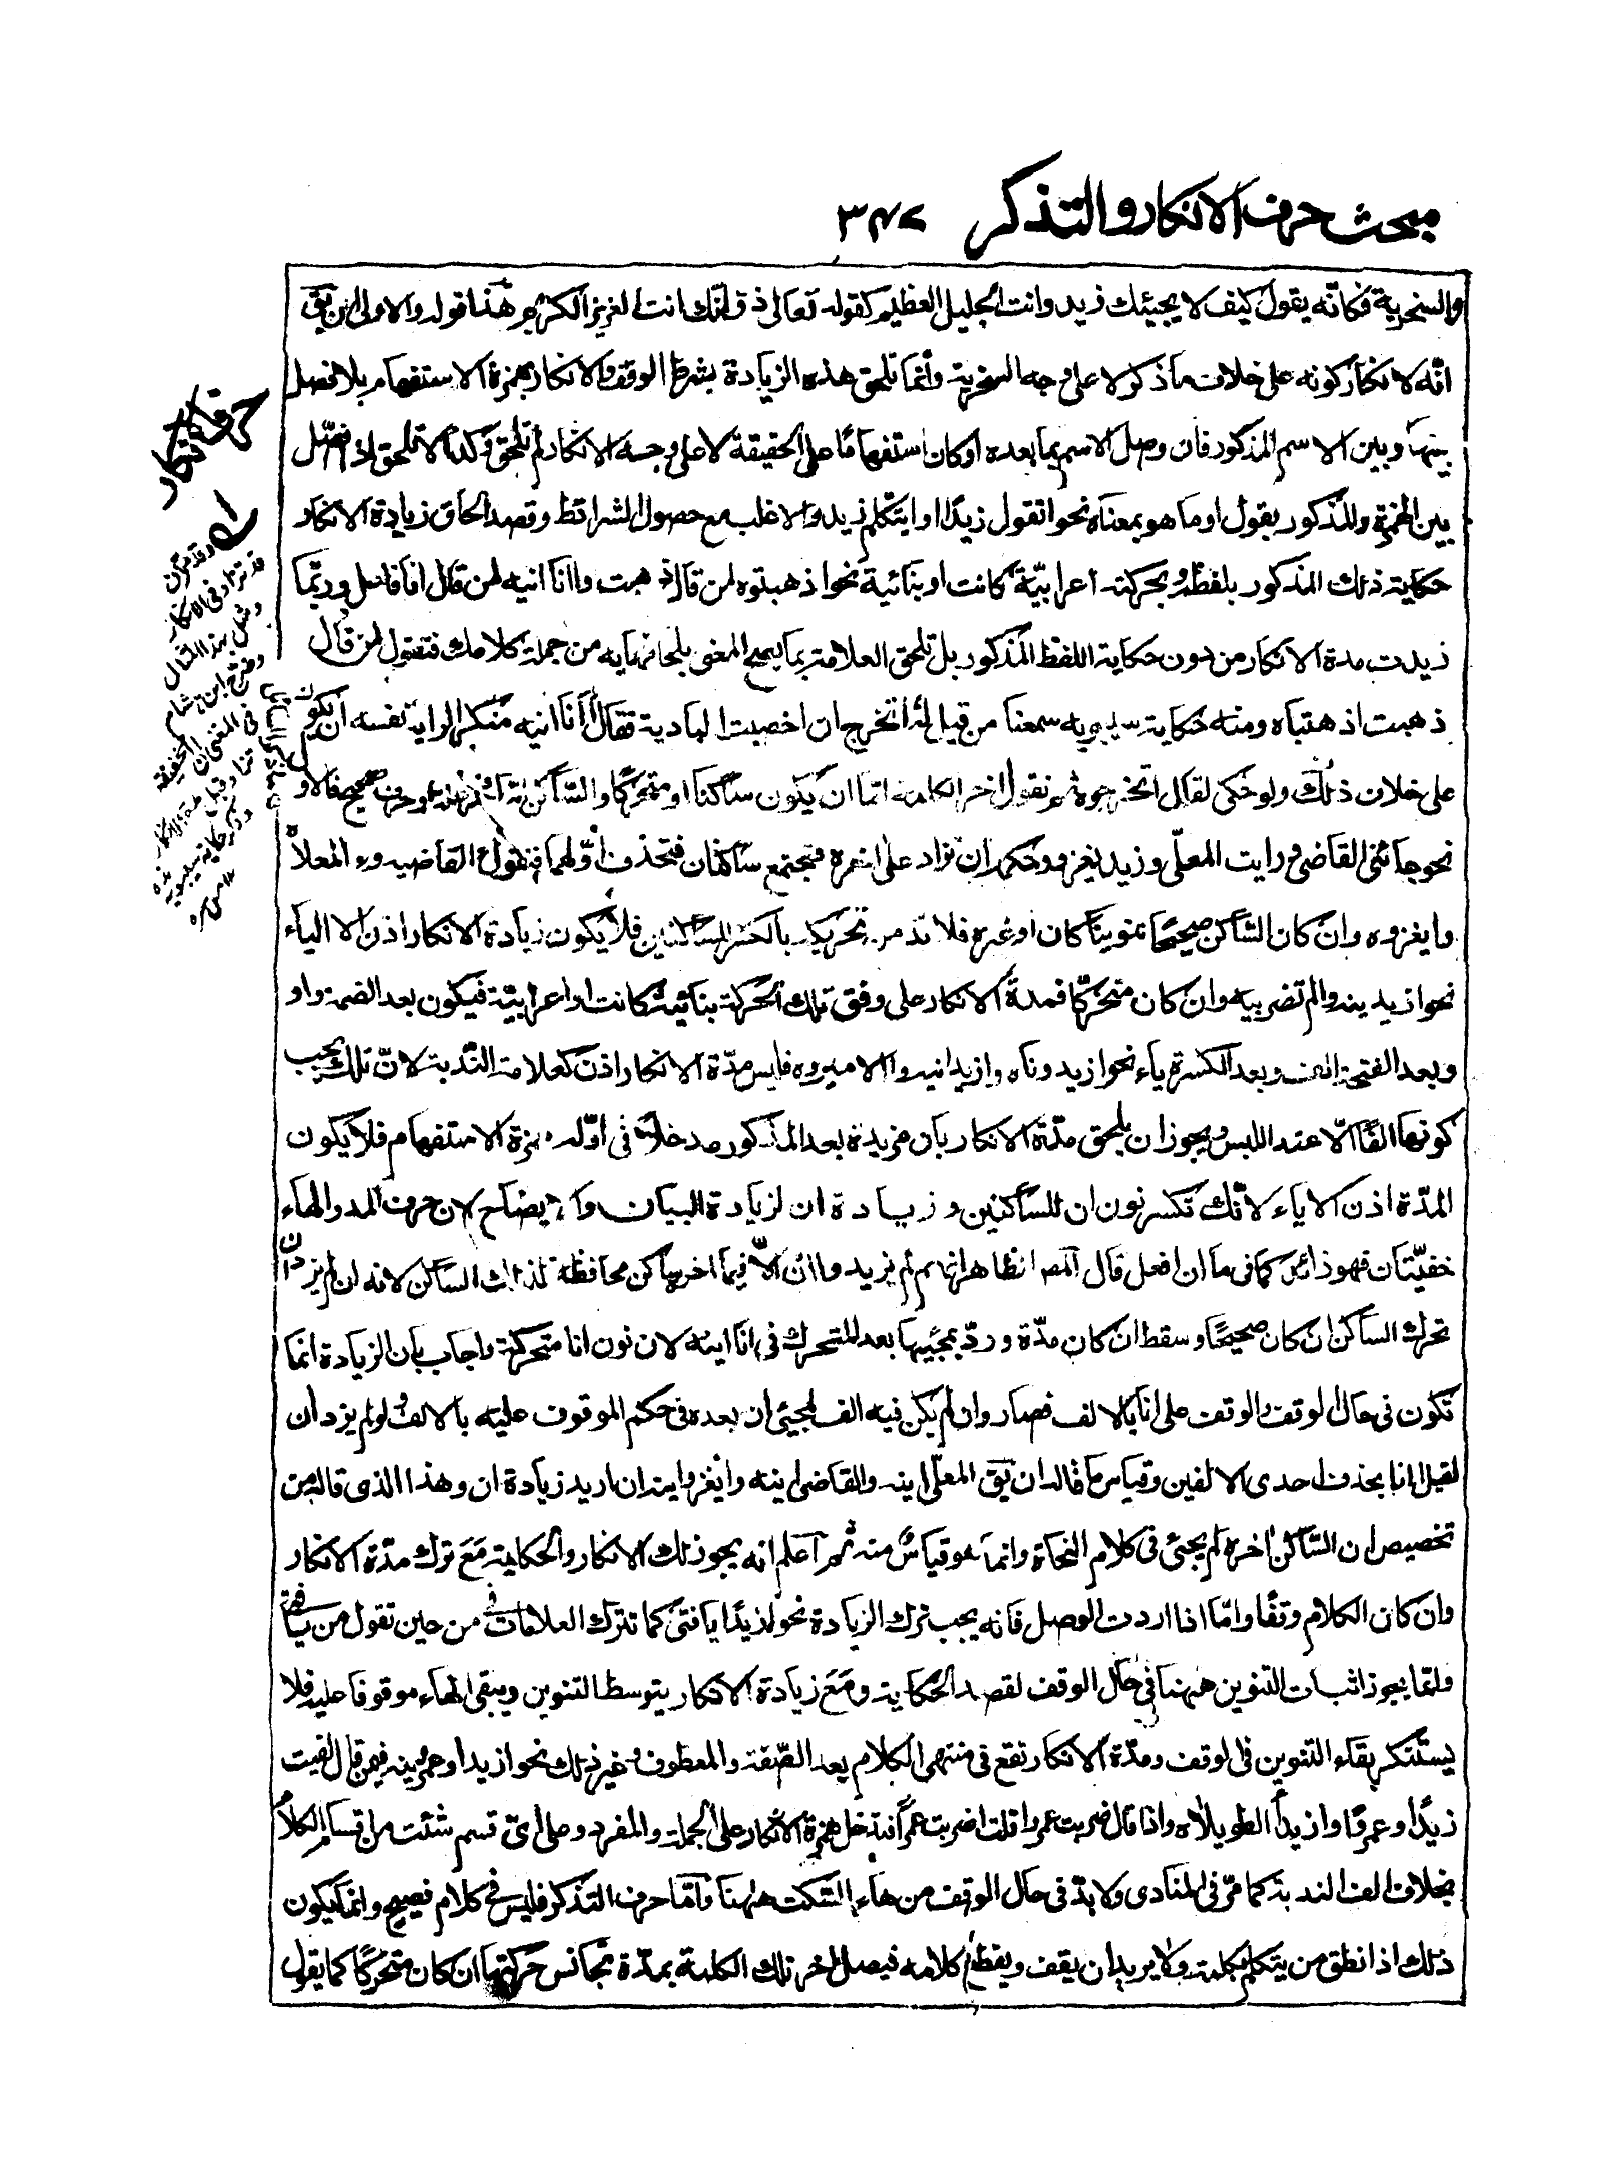 مبحث حرف الانكار والتذكر ٣٤٢
والسخرية فكانّه يقول كيف لا يجيئك زيد وانت الجليل العظيم كقوله تعالى ذق انّك انت العزيز الكريم هذا قوله والاولى ان يق
انّه لانكار كونه على خلاف ما ذكر لا على وجه السخرية وانما تلحق هذه الزيادة بشرط الوقف والانكار بهمزة الاستفهام بلا فصل
بينها وبين الاسم المذكور فان وصل الاسم بما بعده او كان استفهامًا على الحقيقة لا على وجه الانكار لم تلحق وكذا لا تلحق اذا فصل
بين الهمزة والمذكور بقول او ما هو بمعناه نحو اتقول زيدًا او ايتكلم زيد والاغلب مع حصول الشرائط وقصد الحاق زيادة الانكار
حكاية ذلك المذكور بلفظه وبحركته اعرابيّة كانت او بنائية نحو اذهبتوه لمن قال ذهبت واانا انيه لمن قال انا فاعل وربّما
زيدت مدة الانكار من دون حكاية اللفظ المذكور بل تلحق العلامة بما يصح المعنى بلحاقها به من جملة كلامك فتقول لمن قال
ذهبت اذهبتاه ومنه حكاية سيبويه سمعنا من قيل له اتخرج ان اخصبت البادية فقال اانا انيه منكرا لرايه نفسه ان يكون
على خلاف ذلك ولو حكى لقال اتخرجوه ثم نقول اخر الكلمة اما ان يكون ساكنا او متحركا والساكن اما مدة او حرف صحيح فالاول
نحو جائنى القاضى ورايت المعلّى وزيد يغزو وحكمه ان تزاد على اخره فيجتمع ساكنان فتحذف اوّلهما فتقول ءالقاضيه وءالمعلاه
وايغزوه وان كان الساكن صحيحًا تنوينًا كان او غيره فلا بد من تحريكه بالكسر للساكنين فلا يكون زيادة الانكار اذن الا الياء
نحو ازيدنيه والم تضربيه وان كان متحركًا فمدة الانكار على وفق تلك الحركة بنائية كانت او اعرابية فيكون بعد الضمة واو
وبعد الفتحة الف وبعد الكسرة ياء نحو ازيدوناه وازيدانيه واالاميروه فليس مدّة الانكار اذن كعلامة الندبة لانّ تلك يجب
كونها الفًا الّا عند اللبس ويجوز ان يلحق مدّة الانكار بان مزيدة بعد المذكور مدخلة فى اوّله همزة الاستفهام فلا يكون
المدّة اذن الا ياء لانّك تكسر نون ان للساكنين وزيادة ان لزيادة البيان والايضاح لان حرف المد والهاء
خفيّتان فهو زائد كما فى ما ان افعل قال المص الظاهر انهم لم يزيدوا ان الّا فيما اخره ساكن محافظة لذلك الساكن لانه ان لم يزد ان
تحرك الساكن ان كان صحيحًا وسقط ان كان مدّة وردّ بمجيئها بعد المتحرك فى انا انيه لان نون انا متحركة واجاب بان الزيادة انما
تكون فى حال الوقف والوقف على انا بالالف فصار وان لم يكن فيه الف لمجيئ ان بعده فى حكم الموقوف عليه بالالف ولو لم يزد ان
لقيل اانا بحذف احدى الالفين وقياس ما قاله ان يق المعلّى انيه والقاضى انيه وايغزو انيه ان اريد زيادة ان وهذا الذى قاله من
تخصيص ان الساكن اخره لم يجئ فى كلام النحاة وانما هو قياس منه ثم اعلم انه يجوز ذلك الانكار والحكاية مع ترك مدّة الانكار
وان كان الكلام وقفًا وامّا اذا اردت الوصل فانه يجب ترك الزيادة نحو ازيدًا يا فتى كما تترك العلامات فى من حين تقول من يا فتى
وانّما يجوز اثبات التنوين ههنا فى حال الوقف لقصد الحكاية ومع زيادة الانكار يتوسط التنوين ويبقى الهاء موقوفا عليه فلا
يستنكر بقاء التنوين فى الوقف ومدّة الانكار تقع فى منتهى الكلام بعد الصّفة والمعطوف وغير ذلك نحو ازيدا وعمرنيه فيمن قال لقيت
زيدًا وعمرًا وازيدًا الطويلاه واذا قال ضربت عمروا قلت اضربت عمراه فتدخل همزة الانكار على الجملة والمفرد وعلى اىّ قسم شئت من اقسام الكلام
بخلاف الف الندبة كما مرّ فى المنادى ولا بدّ فى حال الوقف من هاء السكت ههنا وامّا حرف التذكر فليس فى كلام فصيح وانما يكون
ذلك اذا نطق من يتكلم بكلمة ولا يريد ان يقف ويقطع كلامه فيصل اخر تلك الكلمة بمدّة تجانس حركتها ان كان متحركًا كما يقول
حرف الانكار
وقد مرّ ان
قد تزاد فى الانكار
ومثل بهذا المثال
وصرّح ابن هشام
فى المغنى ان الخفيفة
تزاد قبل مدة الانكار
وذكر حكاية سيبويه هذه